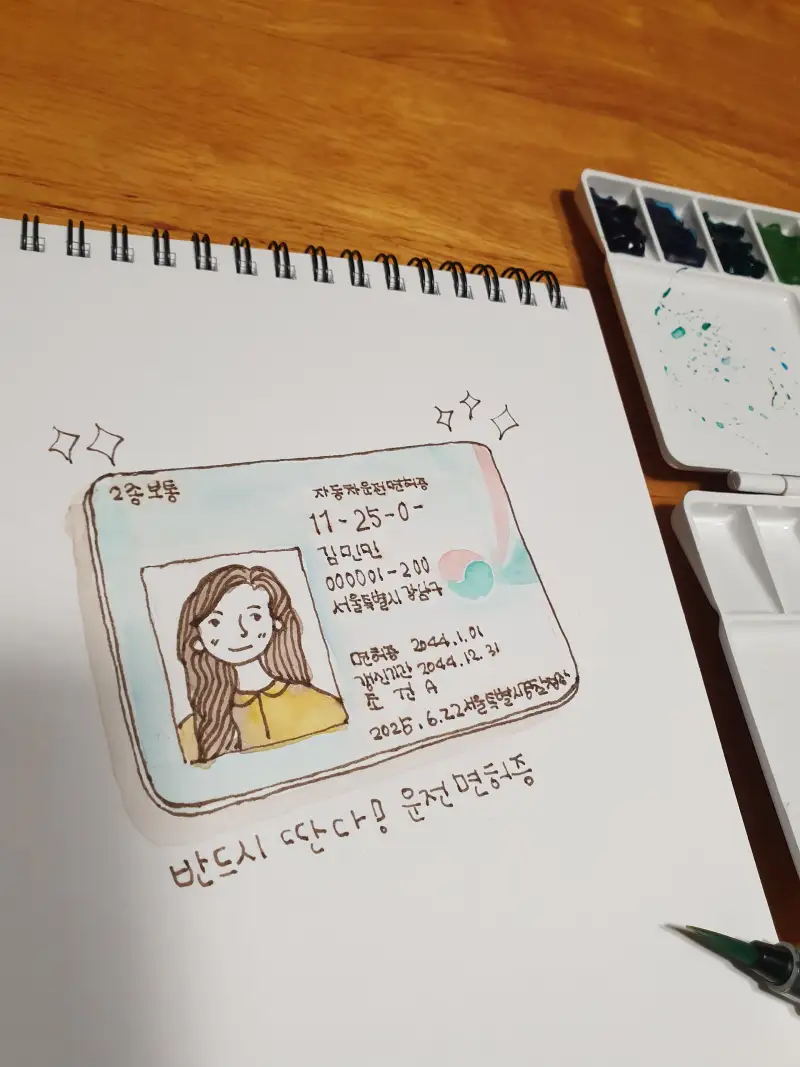 2종보통
자동차운전면허증
11-25-0-
김민민
000001-200
서울특별시 강남구
면허증 2044.1.01
갱신기간 2044.12.31
조 건 A
2025.6.22 서울특별시경찰청장
반드시 딴다 밍 운전면허증